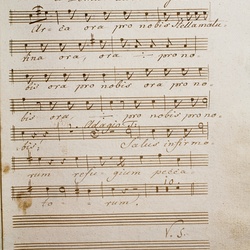 ar-ca ora pro nobis Stellamatu-
tina ora, ora -:- pro no-
bis ora pro nobis ora pro no-
bis ora, -:- pro nobis pro no-
Adagio
bis! Salus infirmo-
rum refu-gium pecca-
to- rum!
V. S.